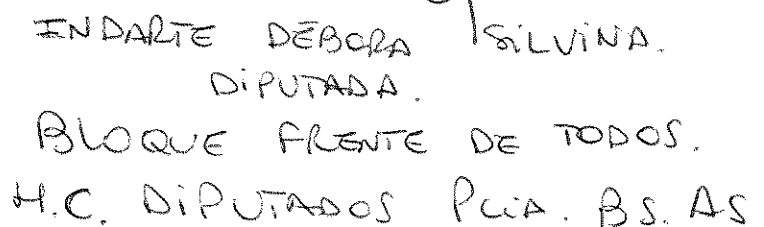 INDARTE DÉBORA SILVINA.
DIPUTADA.
BLOQUE FRENTE DE TODOS.
H.C. DIPUTADOS PCIA. BS. AS